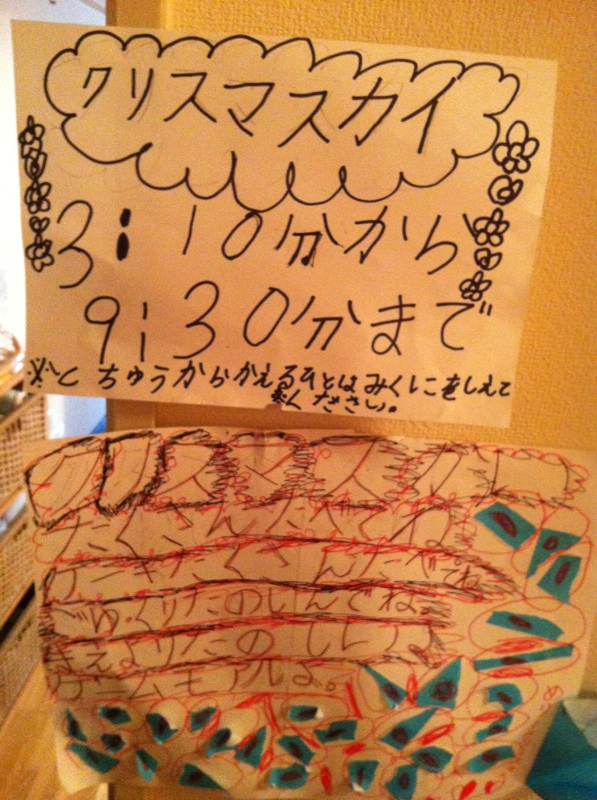 クリスマスカイ
3:10分から
9:30分まで
※とちゅうからかえるひとはみくにをしえて
ください。
クリスマスカイ
たくさんたべてね
ケーキたくさんたべてね
ごゆくりたのしんでね。
たのしし
ゲームもアルよ。